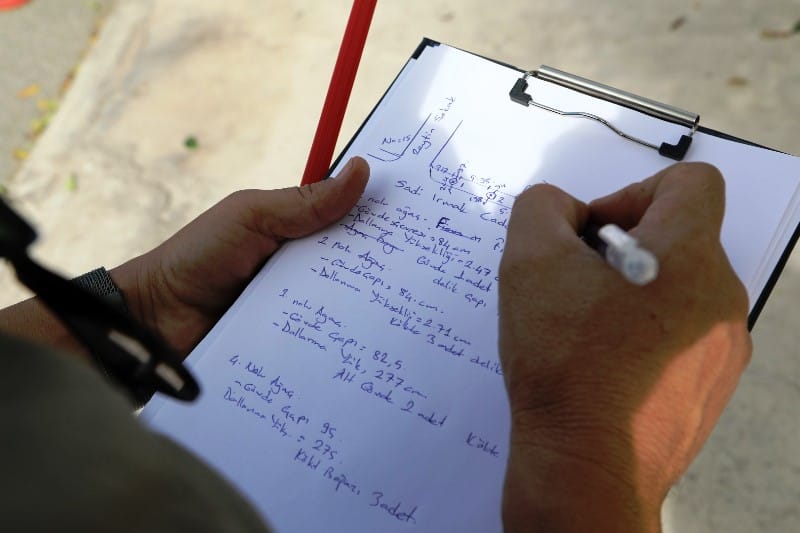 No=15
Zeytin Sokak
Sadi Irmak Cadd
1 nolu ağaç.
- Gövde Çevresi = 84 cm
- Dallanma Yüksekliği = 2.47 c
Gövde 1 adet
delik Çapı
2 nolu Ağaç.
- Gövde Çapı, 84 cm.
- Dallanma Yüksekliği = 2.71 cm
Kökte 3 adet delik
3. nolu Ağaç.
- Gövde Çapı = 82,5.
- Dallanma Yük, 277 cm.
Alt Gövde 2 adet Kökte
4. Nolu Ağaç.
- Gövde Çapı 95.
Dallanma Yük. = 275.
Kök Boğazı 3 adet